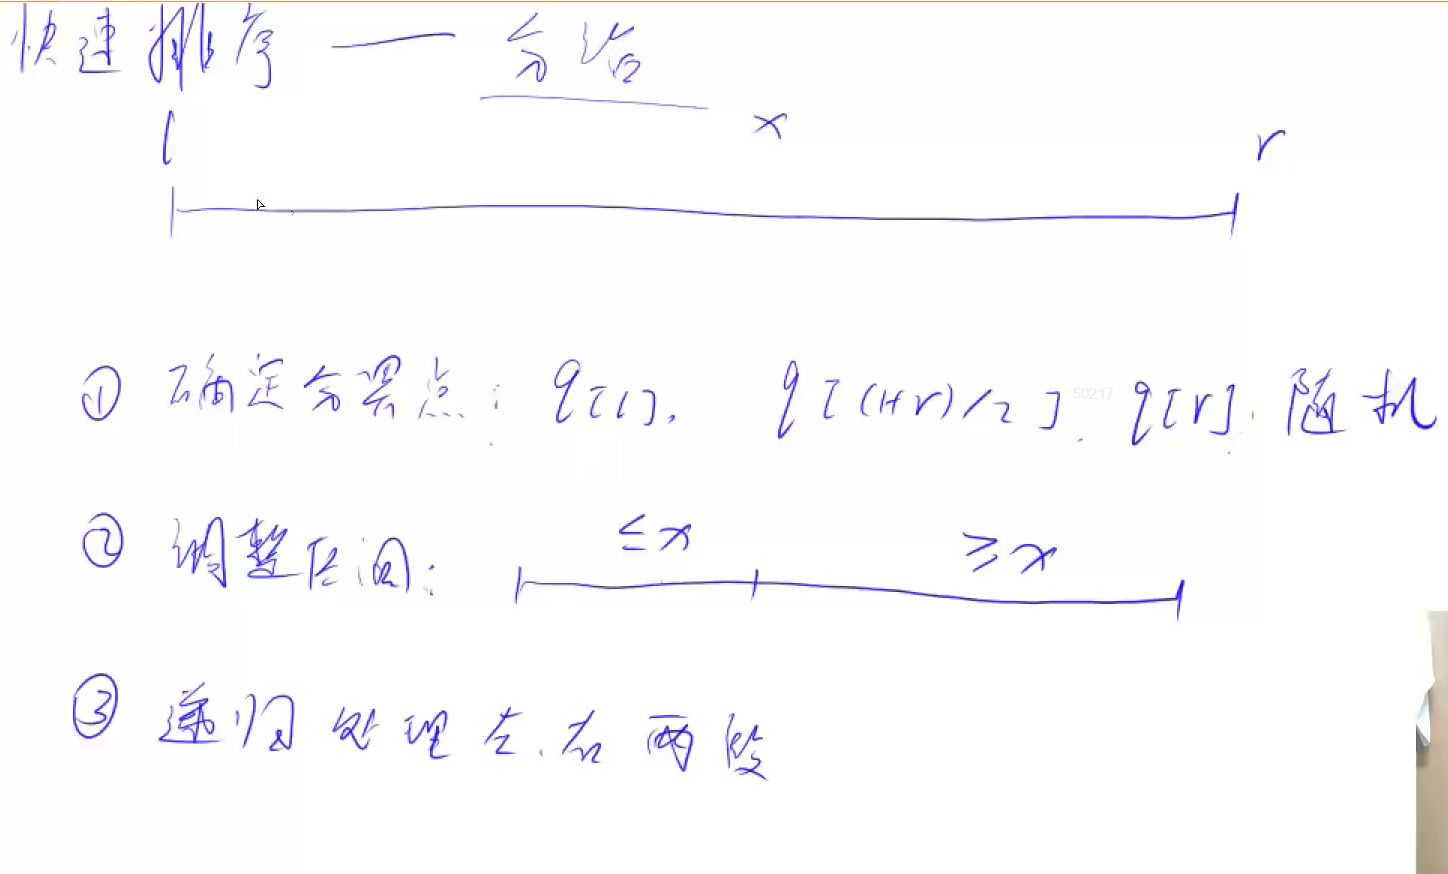 快速排序 —— 分治
l x r
① 确定分界点: q[l], q[(l+r)/2], q[r], 随机
50217
② 调整区间: ≤x ≥x
③ 递归处理左、右两段